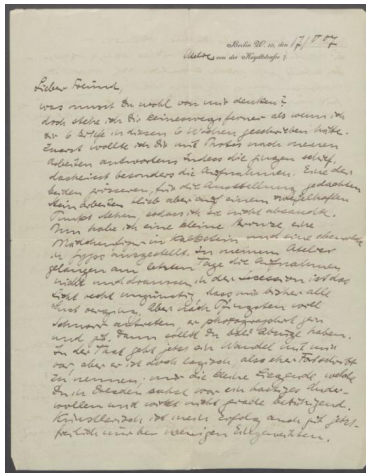 Berlin W. 10, den 17/V 07
von der Heydtstraße 7.
Lieber Freund,
was musst Du wohl von mir denken?
Doch stehe ich Dir keineswegs ferner als wenn ich
Dir 6 Briefe in diesen 6 Wochen geschrieben hätte.
Zuerst wollte ich Dir mit Photos nach neuen
Arbeiten antworten, indess die gingen schief,
das heisst besonders die Aufnahmen. Eine der
beiden grösseren, für die Ausstellung gedachten
Steinarbeiten blieb aber auf einem
Punkt stehen, sodass ich sie nicht absandte.
Nun habe ich eine kleine Bronze, eine
Mädchenfigur in und eine ebensolche
in Gyps ausgestellt. In meinem Atelier
gelangen am letzten Tage die Aufnahmen
nicht und draussen in der ist das
Licht recht ungünstig, dass mir bisher alle
Lust verging. Aber nach Pfingsten will
er photographiert gern
und gut. Dann sollst Du bald Abzüge haben.
In der Tat geht jetzt ein Wandel mit mir
vor, aber er ist doch logisch, also eher Fortschritt
zu nennen, und die kleine welche
Du in Dresden sahst war ein
wollen und wirkt nicht grade
Künstlerisch ist mein Erfolg auch gut jetzt
freilich nur bei wenigen